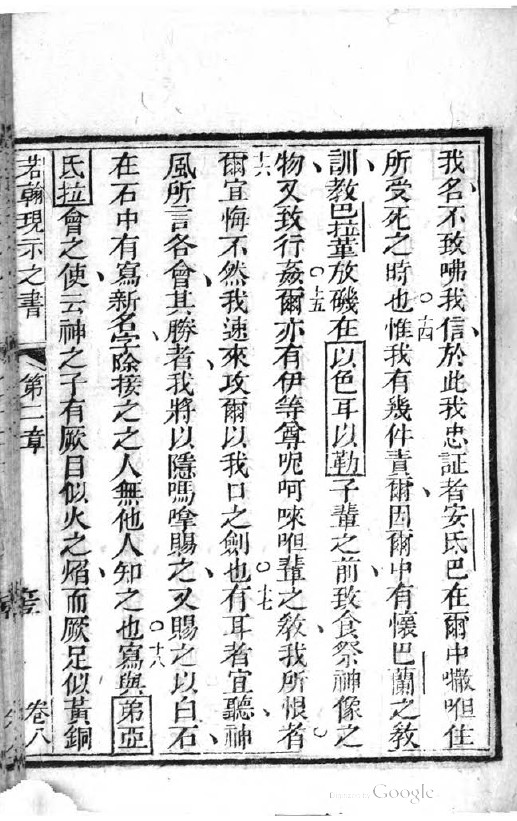 我名、不致咈我信、於此我忠証者安氐巴在爾中㘔呾住
所受死之時也。十四惟我有幾件責爾、因爾中有懷巴蘭之教
訓、教巴拉革放磯在以色耳以勒子輩之前、致食祭神像之
物、又致行姦。十五爾亦有伊等尊呢哥㗚呾輩之教、我所恨者。
十六爾宜悔、不然我速來攻爾以我口之劍也。十七有耳者宜聽、神
風所言各會。其勝者、我將以隱嗎嗱賜之、又賜之以白石、
在石中有寫新名字、除接之之人、無他人知之也。十八寫與弟亞
氐拉會之使云、神之子有厥目似火之熖、而厥足似黃銅
若翰現示之書 第二章 卷八
Digitized by Google